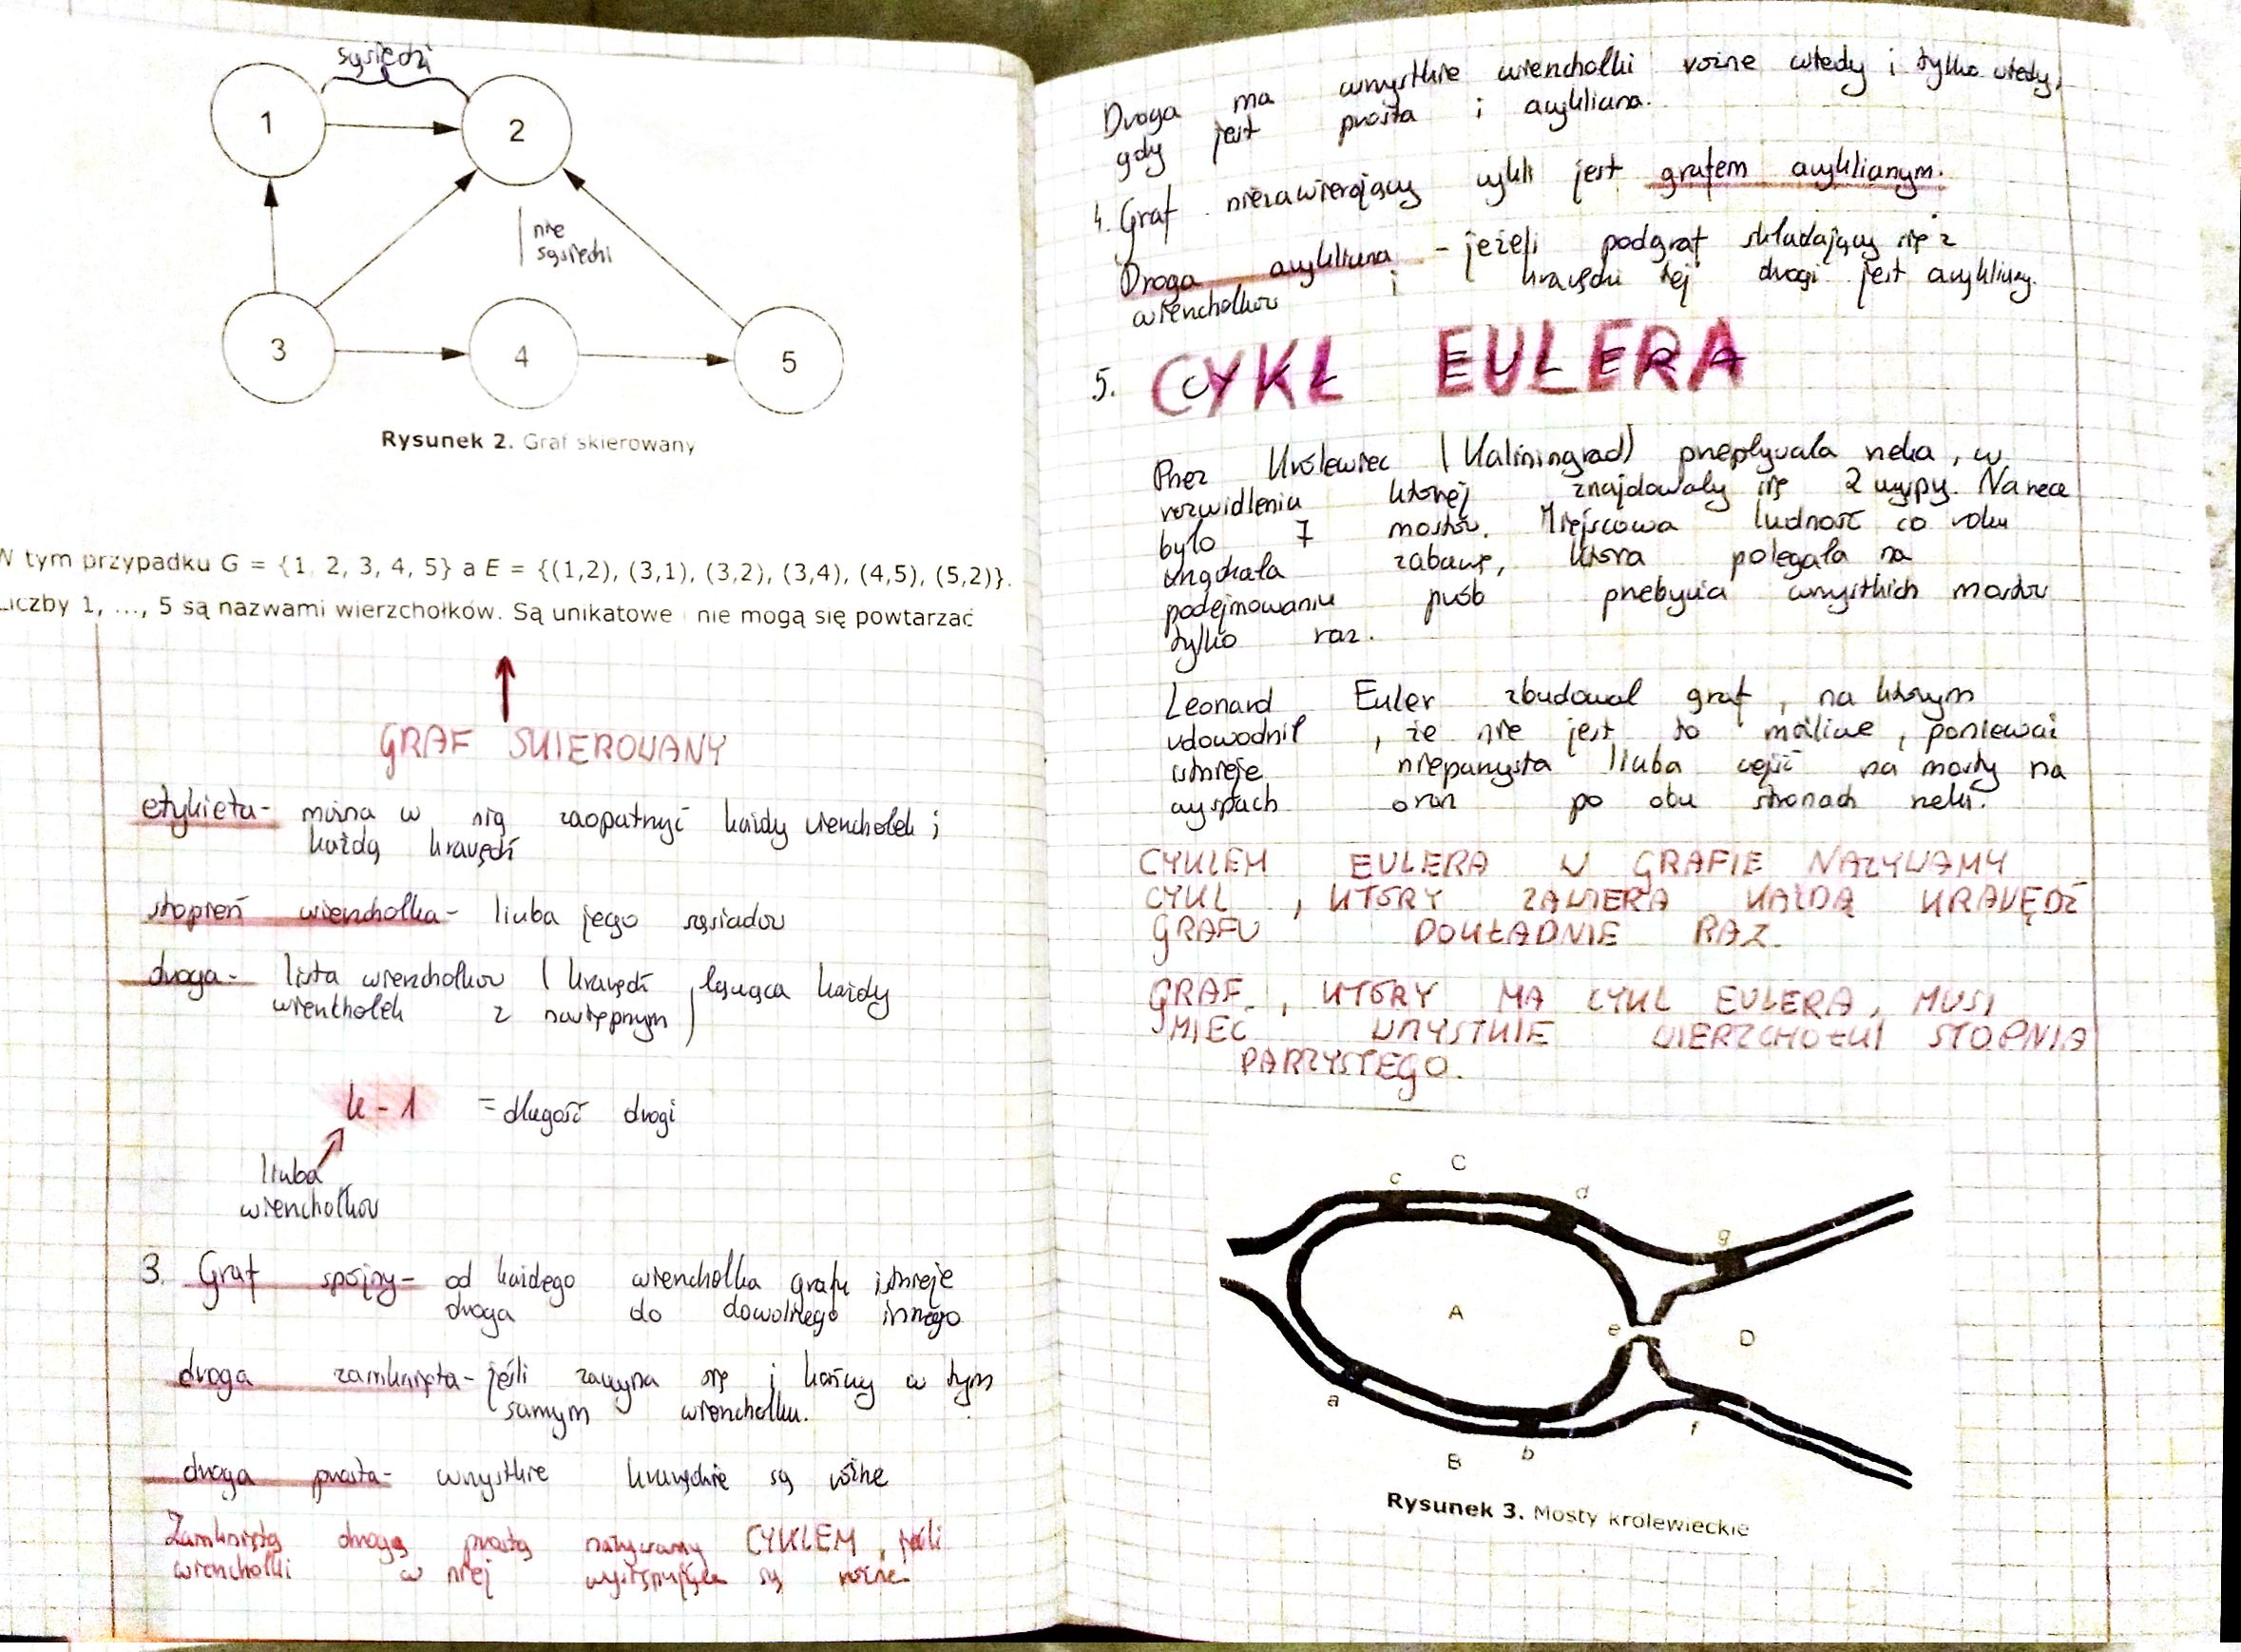 sąsiedzi
1
2
nie
sąsiedzi
3
4
5
Rysunek 2. Graf skierowany
W tym przypadku G = {1, 2, 3, 4, 5} a E = {(1,2), (3,1), (3,2), (3,4), (4,5), (5,2)}.
Liczby 1, ..., 5 są nazwami wierzchołków. Są unikatowe i nie mogą się powtarzać
GRAF SKIEROWANY
etykieta - można w nią zaopatrzyć każdy wierzchołek i
każdą krawędź
stopień wierzchołka - liczba jego sąsiadów
droga - lista wierzchołków ( krawędź łącząca każdy
wierzchołek z następnym )
k - 1 = długość drogi
liczba
wierzchołków
3. Graf spójny - od każdego wierzchołka grafu istnieje
droga do dowolnego innego
droga zamknięta - jeśli zaczyna się i kończy w tym
samym wierzchołku.
droga prosta - wszystkie krawędzie są różne
Zamkniętą drogę prostą nazywamy CYKLEM, jeśli
wierzchołki w niej występujące są różne
Droga ma wszystkie wierzchołki różne wtedy i tylko wtedy,
gdy jest prosta i acykliczna.
4. Graf niezawierający cykli jest grafem acyklicznym.
Droga acykliczna - jeżeli podgraf składający się z
wierzchołków i krawędzi tej drogi jest acykliczny.
5. CYKL EULERA
Przez Królewiec (Kaliningrad) przepływała rzeka, w
rozwidleniu której znajdowały się 2 wyspy. Na rzece
było 7 mostów. Miejscowa ludność co roku
urządzała zabawę, która polegała na
podejmowaniu prób przebycia wszystkich mostów
tylko raz.
Leonard Euler zbudował graf, na którym
udowodnił, że nie jest to możliwe, ponieważ
istnieje nieparzysta liczba wejść na mosty na
wyspach oraz po obu stronach rzeki.
CYKLEM EULERA W GRAFIE NAZYWAMY
CYKL, KTÓRY ZAWIERA KAŻDĄ KRAWĘDŹ
GRAFU DOKŁADNIE RAZ.
GRAF, KTÓRY MA CYKL EULERA, MUSI
MIEĆ WSZYSTKIE WIERZCHOŁKI STOPNIA
PARZYSTEGO.
C
c
d
g
A
e
D
a
B
b
f
Rysunek 3. Mosty królewieckie